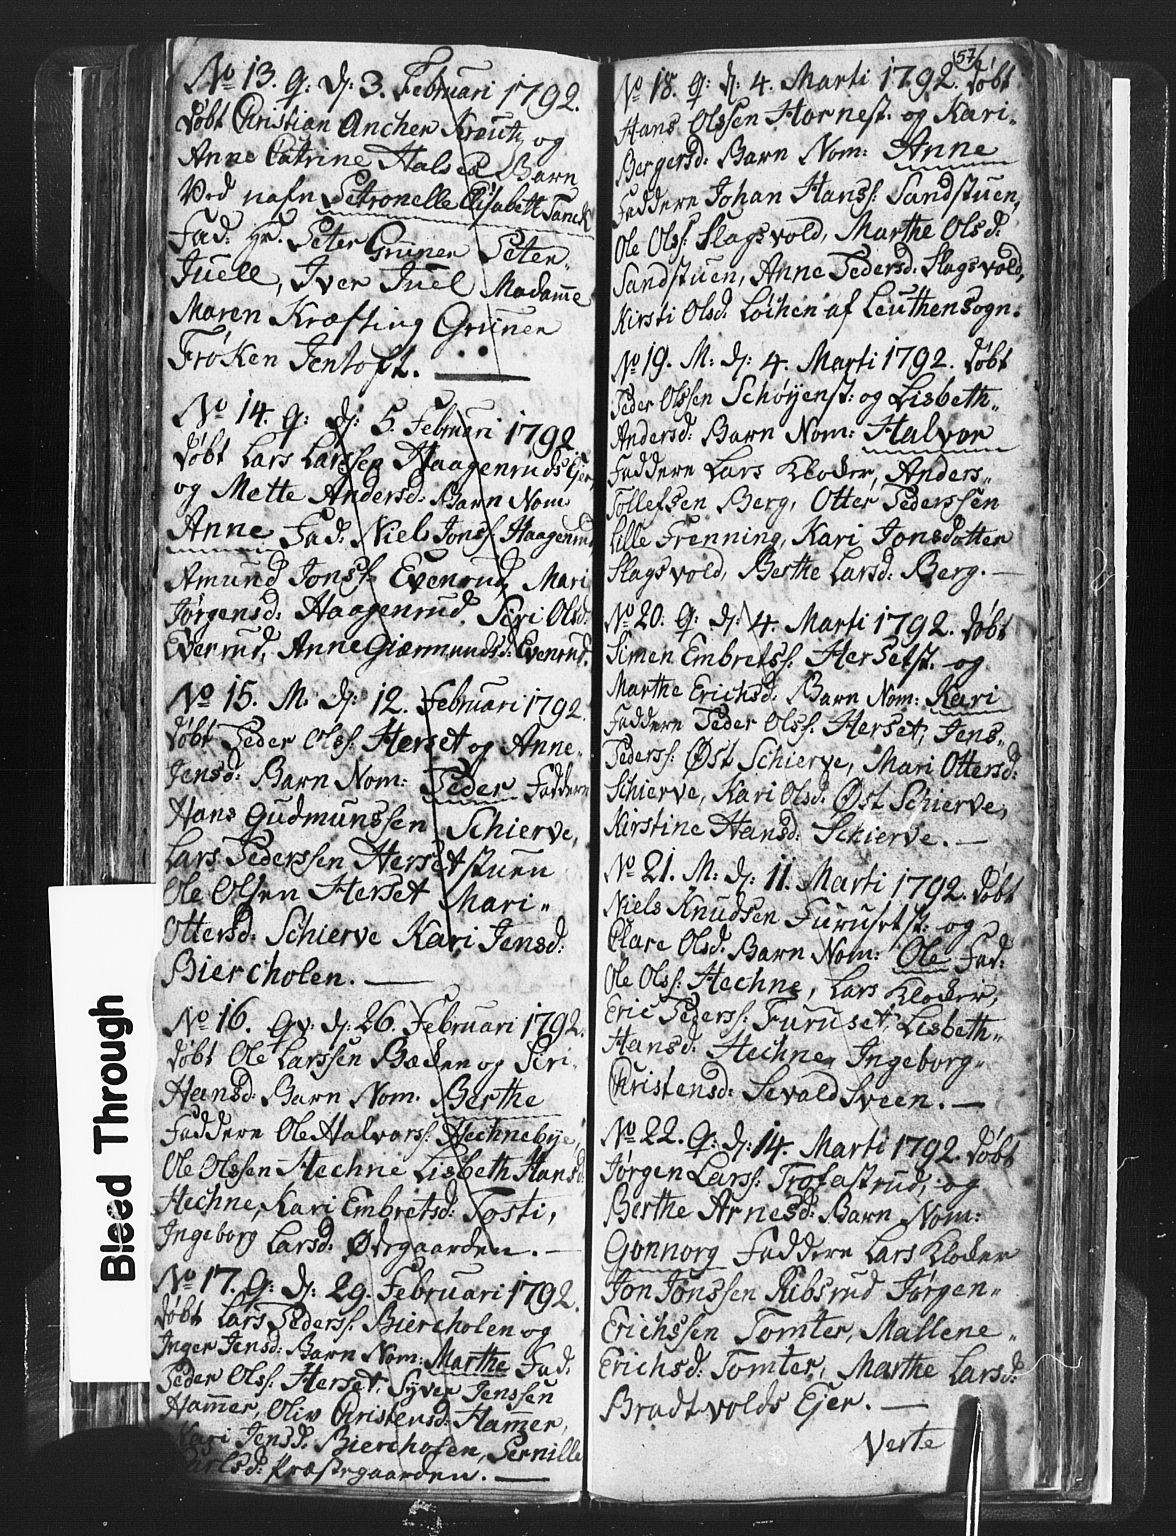 No 13. Q: D: 3. Februari 1792.
døbt Christian Ancher Kreutz og
Anne Catrine Halsed Barn
Ved nafn Petronelle Elisabeth Tanck
Fad: Peter Grüner Peter
Juell, Iver Juel Madamme
Maren Kræfting Grüner
Frøken Jentoft.
No 14. Q: D: 5. Februari 1792
døbt Lars Larssen Haagenruds Ejer
og Mette Andersd: Barn Nom
Anne Fad: Niels Jonss: Haagenrud
Amund Jonss: Evenrud, Mari
Jørgensd: Haagenrud, Siri Olsd:
Evenrud, Anne Giermundsd: Evenrud.
No 15. M. D: 12. Februari 1792.
døbt Peder Olss: Herset og Anne
Jensd: Barn Nom: Peder Faddern
Hans Gudmunssen Schierve,
Lars Pederssen Hersetstuen
Ole Olssen Herset Mari-
Ottersd: Schierve Kari Jensd:
Biercholen.
No 16. Qv: D: 26. Februari 1792.
døbt Ole Larssen Bæcken og Siri
Hansd: Barn Nom: Berthe
Faddere Ole Halvorss: Hechnebye,
Ole Olssen Hechne Lisbeth Hansd:
Hechne, Kari Embretsd: Tosti,
Ingeborg Larsd: Ødegaarden.
No 17. Q: D: 29. Februari 1792.
døbt Lars Pederss: Biercholen og
Inger Jensd: Barn Nom: Marthe Fad:
Peder Olss: Herset, Syver Jenssen
Hammer, Oliv Christensd: Hamer,
Kari Jensd: Biercholen, Pernille
Carlsd: Præstegaarden.
57
No 18. Q: D: 4. Marti 1792. døbt
Hans Olssen Hornest. og Kari-
Bergersd: Barn Nom: Anne
Faddere Johan Hanss: Sandstuen,
Ole Olss: Slagsvold, Marthe Olsd:
Sandstuen, Anne Pedersd: Slagsvold,
Kirsti Olsd: Løchen af Leuthensogn.
No 19. M: D: 4. Marti 1792. døbt
Peder Olssen Schøyenst: og Lisbeth-
Andersd: Barn Nom: Halvor
Faddere Lars Klocker, Anders-
Tollefsen Berg, Otter Pederssen
Lille Frenning, Kari Jonsdotter
Slagsvold, Berthe Larsd: Berg.
No 20. Q: D: 4. Marti 1792. døbt
Simen Embretss: Hersetst. og
Marthe Erichsd: Barn Nom: Kari
Faddere Peder Olss: Herset, Jens-
Pederss: Øst Schierve, Mari Ottersd:
Schierve, Kari Olsd: Øst Schierve,
Kirstine Hansd: Schierve.
No 21. M. D: 11. Marti 1792. døbt
Niels Knudsen Furusetst: og
Clare Olsd: Barn Nom: Ole Fad:
Ole Olss: Hechne, Lars Klocker,
Eric Pederss: Furuset, Lisbeth-
Hansd: Hechne, Ingeborg-
Christensd: Sevaldsveen.
No 22. Q: D: 14. Marti 1792. døbt
Jørgen Larss: Trofastrud, og
Berthe Arnesd: Barn Nom:
Gonnorg Faddere Lars Klocker
Jon Jonssen Ribsrud Jørgen-
Erichssen Tomter, Mallene-
Erichsd: Tomter, Marthe Larsd:
Bradtvolds Ejer.
Verte
Bleed Through